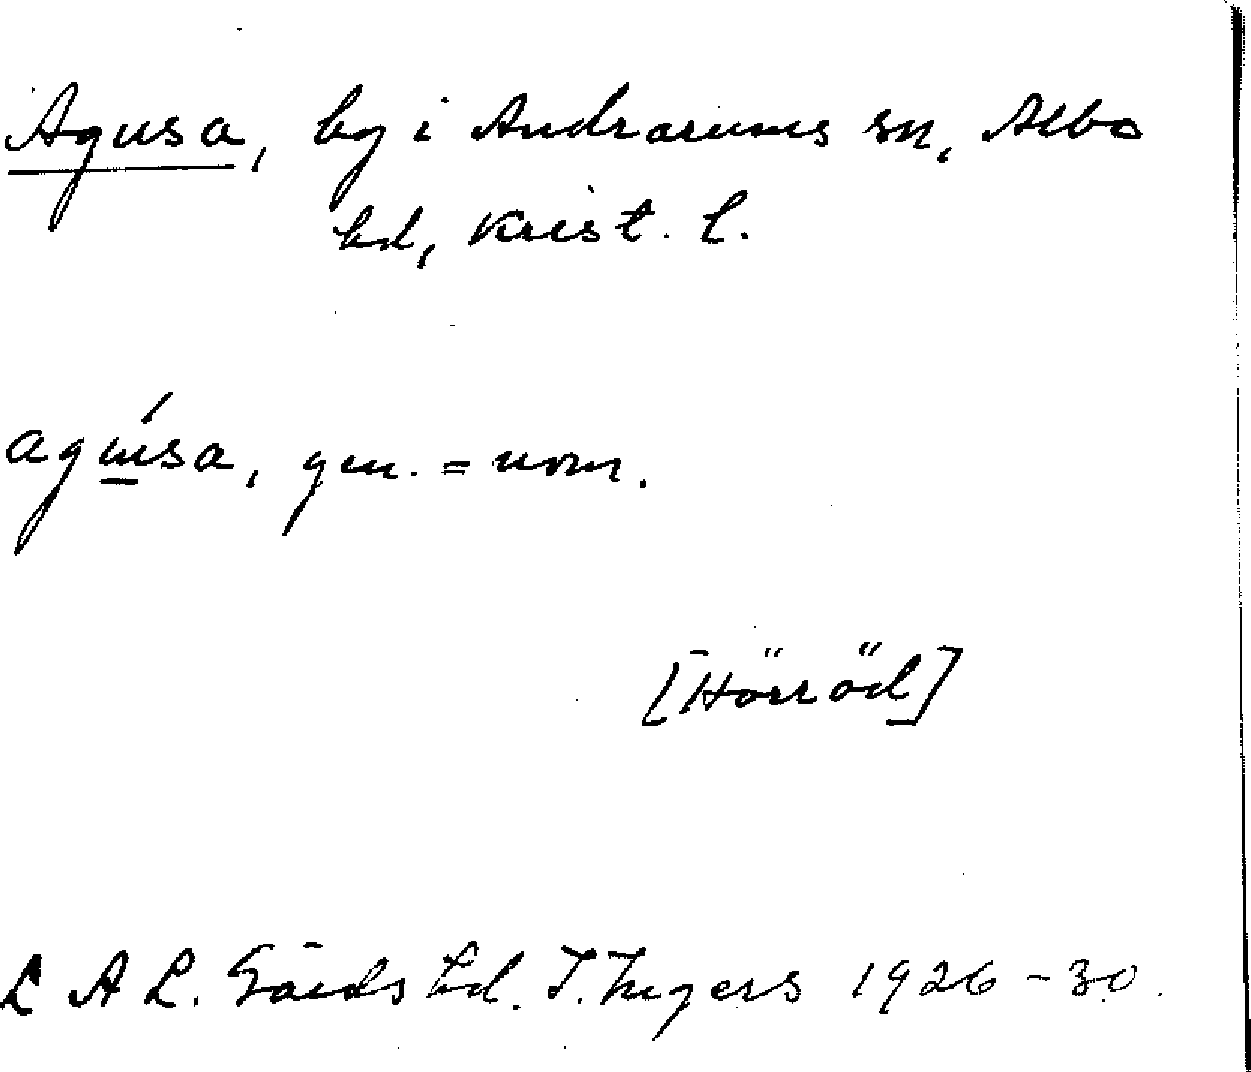 Agusa, by i Andrarums sn, Albo
hd, Krist. l.
agúsa, gen. = nom.
[Hörröd]
L A L. Gärds hd. I. Ingers 1926-30.